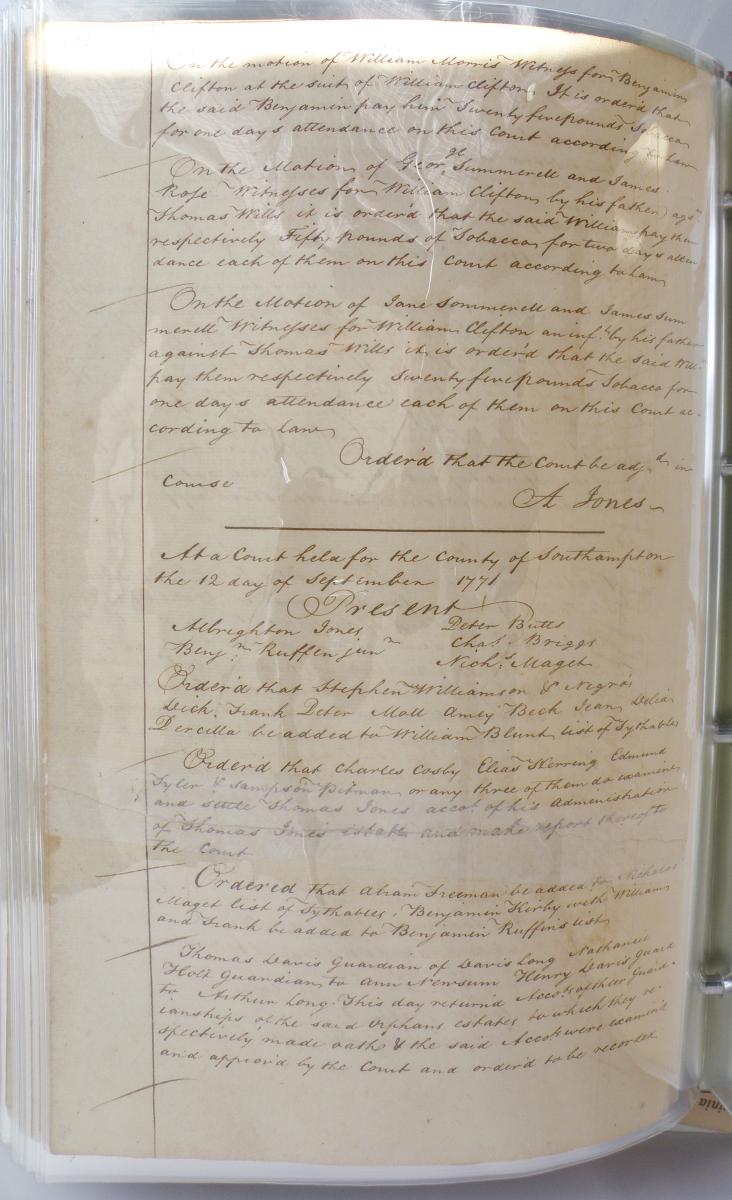 On the motion of William Morris Witness for Benjamin
Clifton at the suit of William Clifton. It is order'd that
the said Benjamin pay him Twenty five pounds Tobacco
for one days attendance on this Court according to Law
On the Motion of George Summerell and James
Rose Witnesses for William Clifton by his father agst
Thomas Wills it is order'd that the said William pay them
respectively Fifty pounds of Tobacco for two days atten
dance each of them on this Court according to Law
On the Motion of Jane Sommerell and James Sum
merell Witnesses for William Clifton an inft by his father
against Thomas Wills it is order'd that the said Willm
pay them respectively Twenty five pounds Tobacco for
one days attendance each of them on this Court ac-
cording to Law
Order'd that the Court be adjd in
Course
A Jones
At a Court held for the County of Southampton
the 12 day of September 1771
Present
Albrighton Jones Peter Butts
Benjn Ruffen junr Chas. Briggs
Nichs Maget
Order'd that Stephen Williamson & Negro's
Dick, Frank Peter Moll Amey Beck Jean Delia
Percilla be added to William Blunt list of Tythables
Order'd that Charles Cosby Elias Herring Edmund
Tyler & Sampson Pitman or any three of them do examine
and settle Thomas Jones accot. of his Administration
of Thomas Jones estate and make report thereof to
the Court
Ordered that Abram Freeman be added to Nicholas
Maget list of Tythables, Benjamin Kirby with William
and Frank be added to Benjamin Ruffin's list
Thomas Davis Guardian of Davis Long Nathaniel
Holt Guardian to Ann Newsum Henry Davis Guard
to Arthur Long. This day return'd Accots of their Guard-
ianships of the said Orphans estates to which they re-
spectively made oath & the said Accots were examin'd
and approv'd by the Court and order'd to be recorded